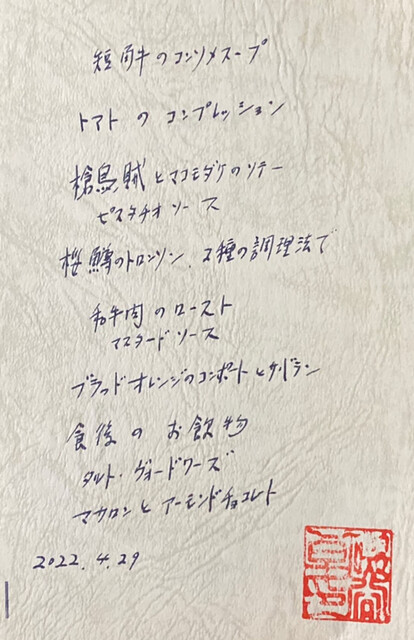 短角牛のコンソメスープ
トマトのコンプレッション
槍烏賊とマコモダケのソテー
ピスタチオソース
桜鱒のトロンソン、2種の調理法で
和牛肉のロースト
マスタードソース
ブラッドオレンジのコンポートと
食後のお飲物
タルト・ヴォードワーズ
マカロンとアーモンドチョコレート
2022.4.29